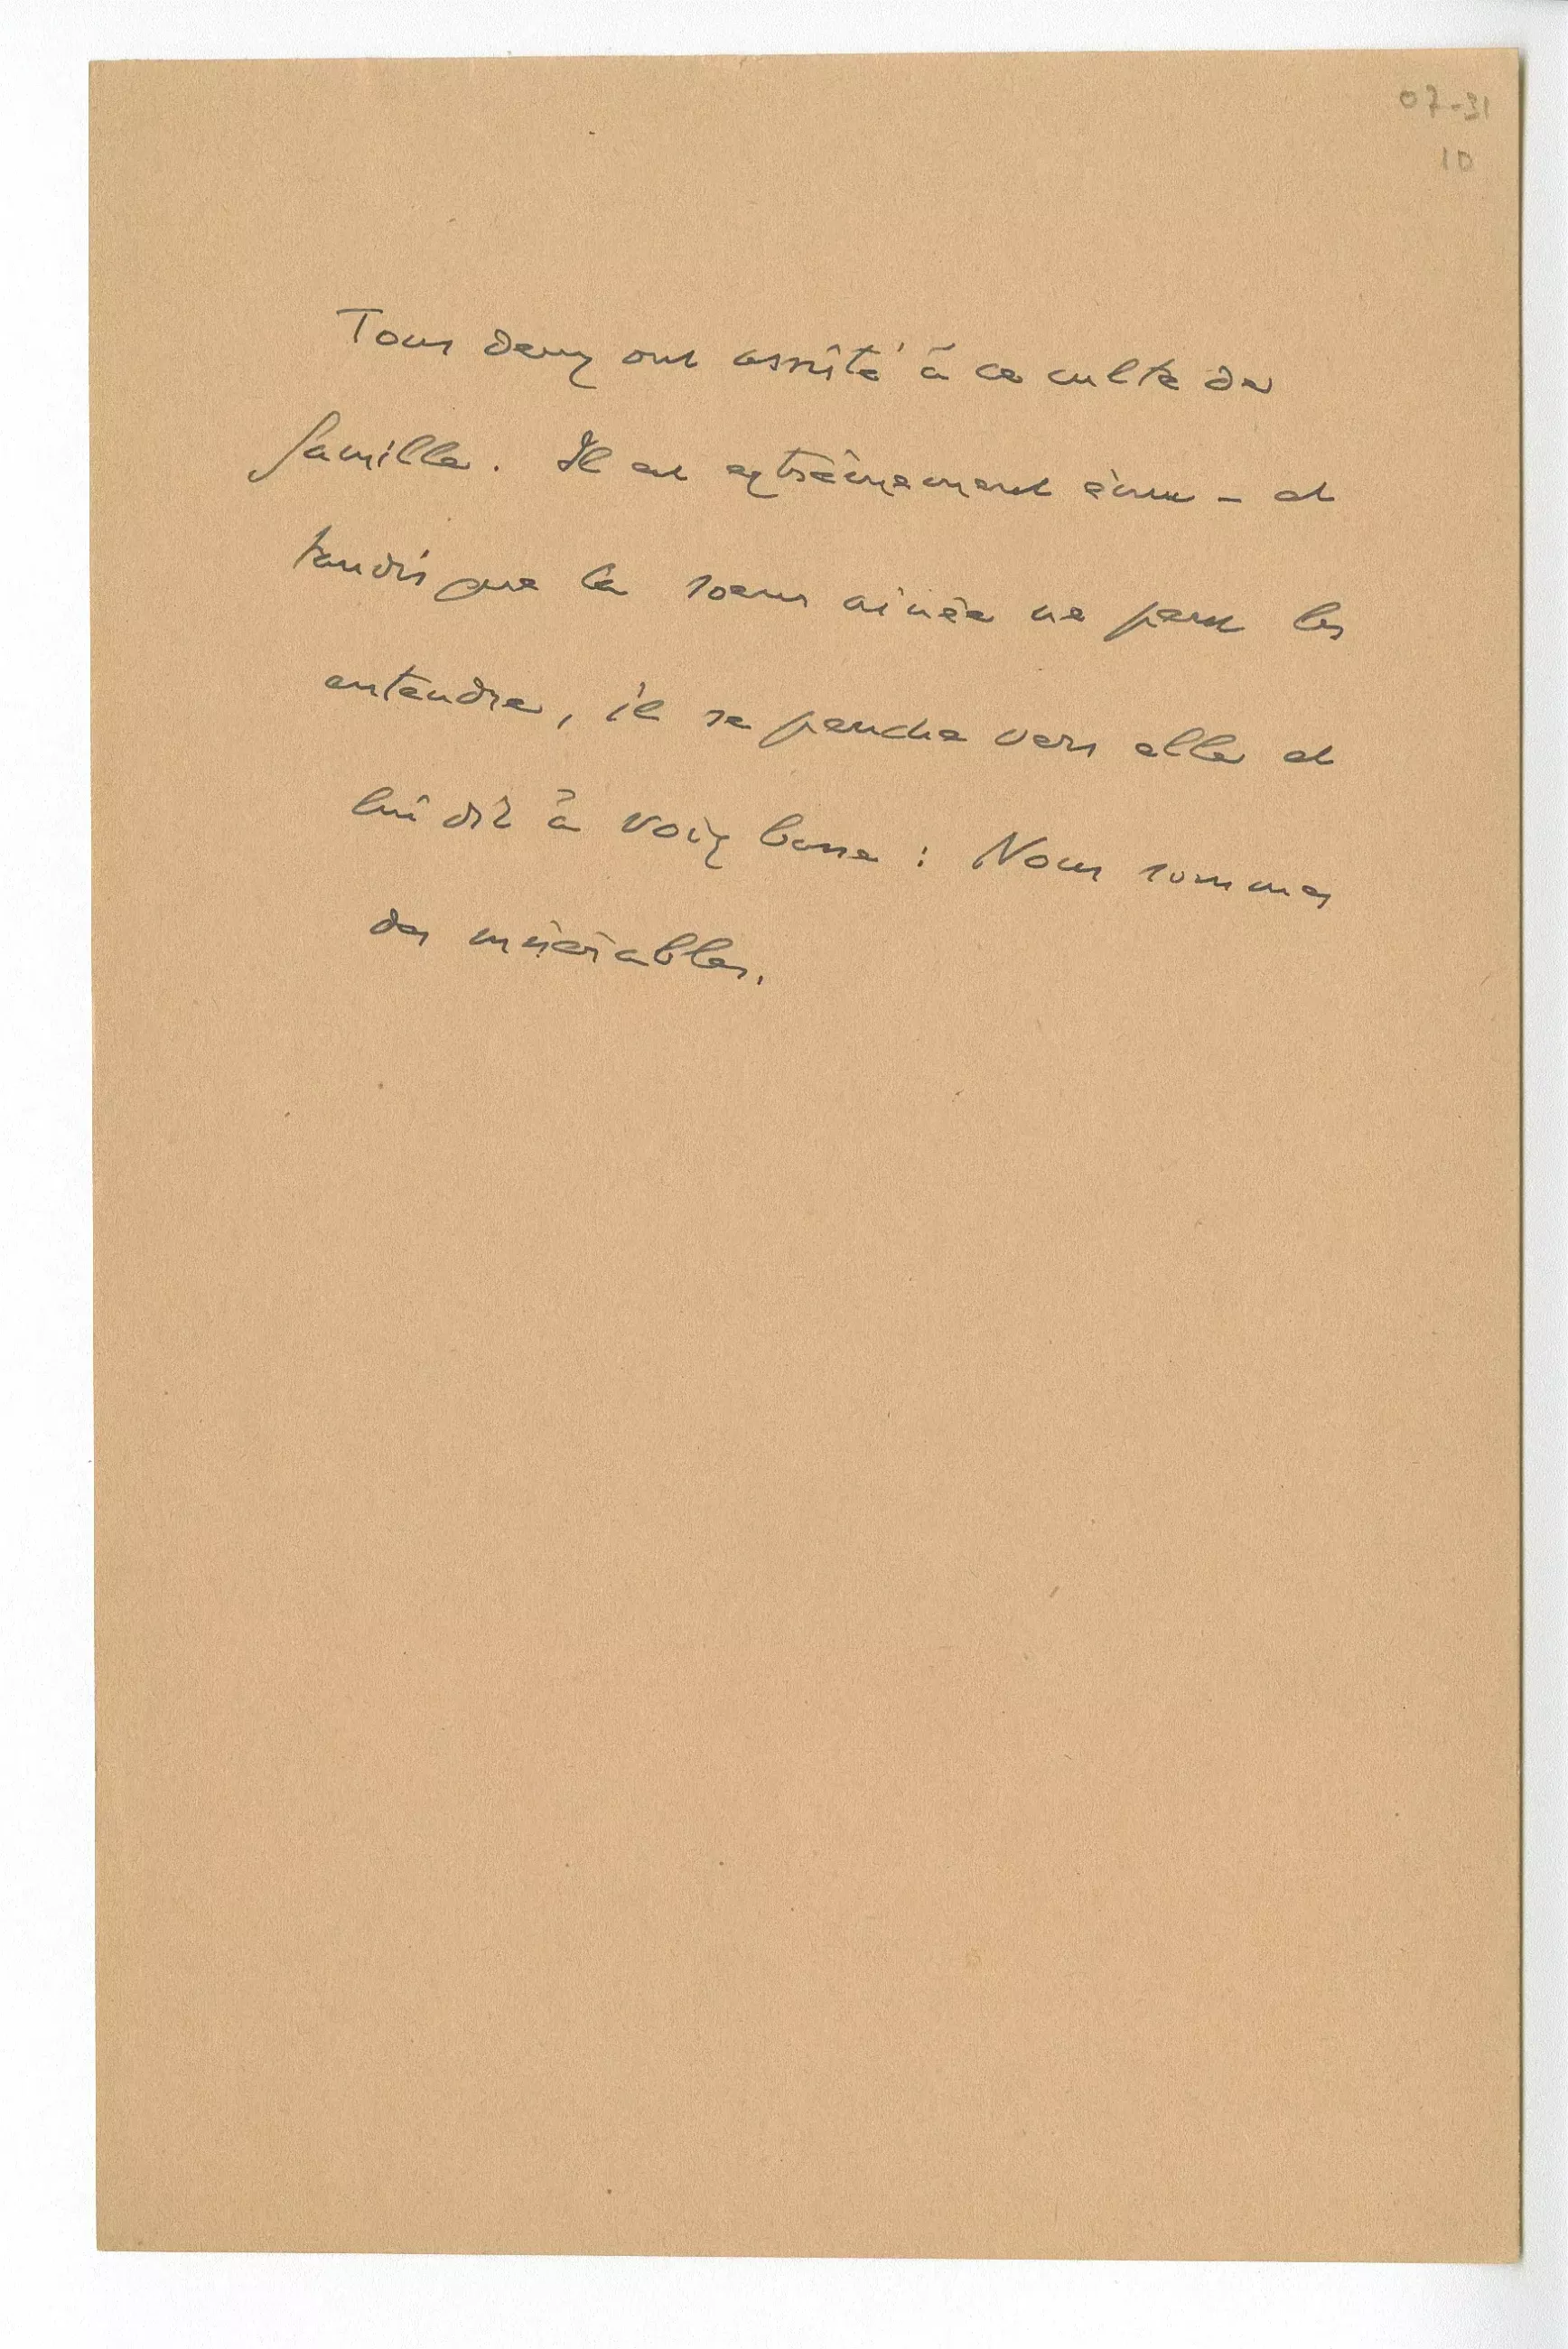 07-31
10
Tous deux ont assisté à ce culte de
famille. Il est extrêmement ému – et
tandis que la soeur ainée ne peut les
entendre, il se penche vers elle et
lui dit à voix basse : Nous sommes
des misérables.